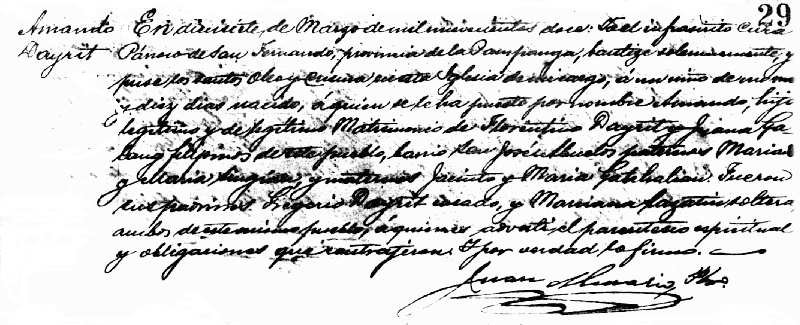 29
Amando Dayrit
En diecisiete de Marzo de mil novecientos doce: Yo el infrascrito Cura
Párroco de San Fernando, provincia de la Pampanga, bautizé solemnemente, y
puse los Santos Oleo y Crisma en esta Iglesia de mi cargo, á un niño de
diez dias nacido, á quien se le ha puesto por nombre Amando, hijo
legítimo y de legítimo Matrimonio de Florentino Dayrit y Juana Ga-
lang filipinos de este pueblo, barrio San José: Abuelos paternos Mariano
y Maria Singian, y maternos Jacinto y Maria Gatchalian. Fueron
sus padrinos Ligorio Dayrit casado, y Mariana soltera
ambos de este mismo pueblo, á quienes advertí el parentesco espiritual
y obligaciones que contrajeron. Y por verdad lo firmo.
Juan Almario Pbro.